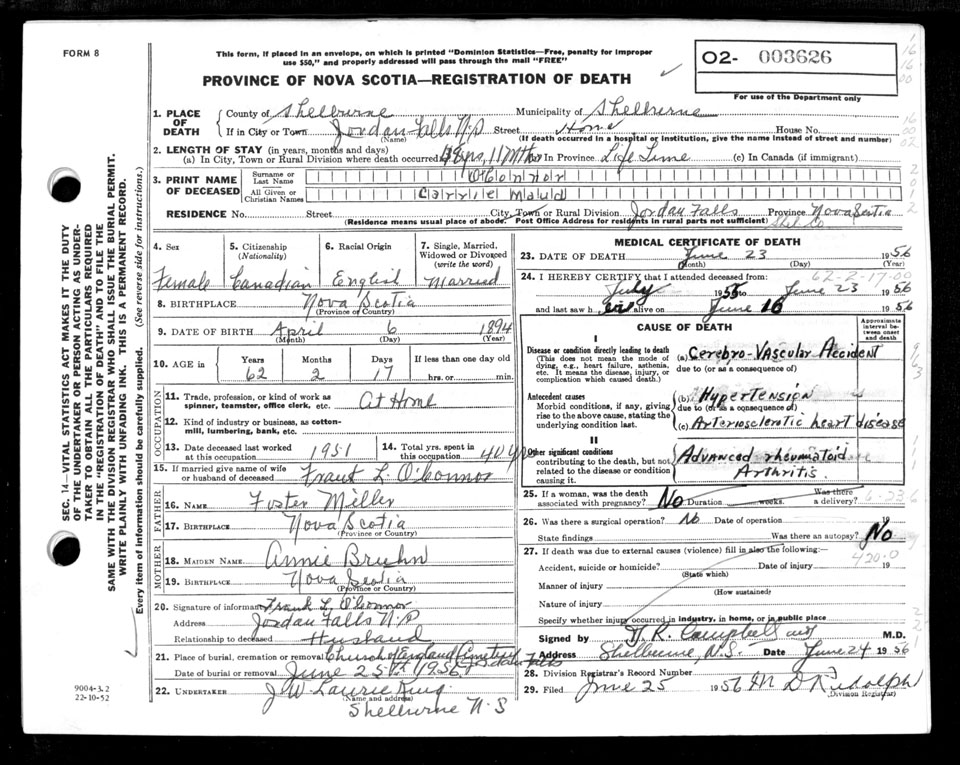 FORM 8
This form, if placed in an envelope, on which is printed "Dominion Statistics—Free, penalty for improper
use $50," and properly addressed will pass through the mail "FREE"
PROVINCE OF NOVA SCOTIA—REGISTRATION OF DEATH
O2- 003626
For use of the Department only
SEC. 14—VITAL STATISTICS ACT MAKES IT THE DUTY
OF THE UNDERTAKER OR PERSON ACTING AS UNDER-
TAKER TO OBTAIN ALL THE PARTICULARS REQUIRED
IN THE "REGISTRATION OF DEATH" AND TO FILE THE
SAME WITH THE DIVISION REGISTRAR WHO SHALL ISSUE THE BURIAL PERMIT.
WRITE PLAINLY WITH UNFADING INK. THIS IS A PERMANENT RECORD.
Every item of information should be carefully supplied. (See reverse side for instructions.)
1. PLACE OF DEATH
County of Shelburne Municipality of Shelburne
If in City or Town Jordan Falls N.S Street Home House No.
(Name) (If death occurred in a hospital or institution, give the name instead of street and number)
2. LENGTH OF STAY (in years, months and days)
(a) In City, Town or Rural Division where death occurred yrs, 11 Mths (b) In Province Life Time (c) In Canada (if immigrant)
3. PRINT NAME OF DECEASED
Surname or Last Name O'Connor
All Given or Christian Names Carrie Maud
RESIDENCE No. Street City, Town or Rural Division Jordan Falls Province Nova Scotia
(Residence means usual place of abode. Post Office Address for residents in rural parts not sufficient) Shel. Co
4. Sex Female
5. Citizenship (Nationality) Canadian
6. Racial Origin English
7. Single, Married, Widowed or Divorced (write the word) Married
8. BIRTHPLACE Nova Scotia
(Province or Country)
9. DATE OF BIRTH April 6 1894
(Month) (Day) (Year)
10. AGE in Years 62 Months 2 Days 17 If less than one day old hrs. or min.
OCCUPATION
11. Trade, profession, or kind of work as spinner, teamster, office clerk, etc. At Home
12. Kind of industry or business, as cotton-mill, lumbering, bank, etc.
13. Date deceased last worked at this occupation 1951
14. Total yrs. spent in this occupation 40 yrs
15. If married give name of wife or husband of deceased Frank L O'Connor
FATHER
16. NAME Foster Miller
17. BIRTHPLACE Nova Scotia
(Province or Country)
MOTHER
18. MAIDEN NAME Annie Bruhn
19. BIRTHPLACE Nova Scotia
(Province or Country)
20. Signature of informant Frank L. O'Connor
Address Jordan Falls N.S
Relationship to deceased Husband
21. Place of burial, cremation or removal Church of England Cemetery Jordan Falls
Date of burial or removal June 25th 1956
22. UNDERTAKER J. W. Laurie King.
(Name and address)
Shelburne N.S
9004-3.2
22-10-52
MEDICAL CERTIFICATE OF DEATH
23. DATE OF DEATH June 23 1956
(Month) (Day) (Year)
24. I HEREBY CERTIFY that I attended deceased from: 62-2-17-00
July 1955 to June 23 1956
and last saw her alive on June 16 1956
CAUSE OF DEATH
Approximate interval between onset and death
I
Disease or condition directly leading to death
(This does not mean the mode of dying, e.g., heart failure, asthenia, etc. It means the disease, injury, or complication which caused death.)
(a) Cerebro-Vascular Accident
due to (or as a consequence of)
Antecedent causes
Morbid conditions, if any, giving rise to the above cause, stating the underlying condition last.
(b) Hypertension
due to (or as a consequence of)
(c) Arteriosclerotic heart disease
II
Other significant conditions
contributing to the death, but not related to the disease or condition causing it.
Advanced rheumatoid Arthritis
25. If a woman, was the death associated with pregnancy? No Duration weeks. Was there a delivery?
26. Was there a surgical operation? No Date of operation 19
State findings Was there an autopsy? No
27. If death was due to external causes (violence) fill in also the following: 420.0
Accident, suicide or homicide? Date of injury 19
(State which)
Manner of injury
(How sustained)
Nature of injury
Specify whether injury occurred in industry, in home, or in public place
Signed by H. K. Campbell M.D.
Address Shelburne, N.S. Date June 24 1956
28. Division Registrar's Record Number
29. Filed June 25 1956 M D Rudolph
(Division Registrar)